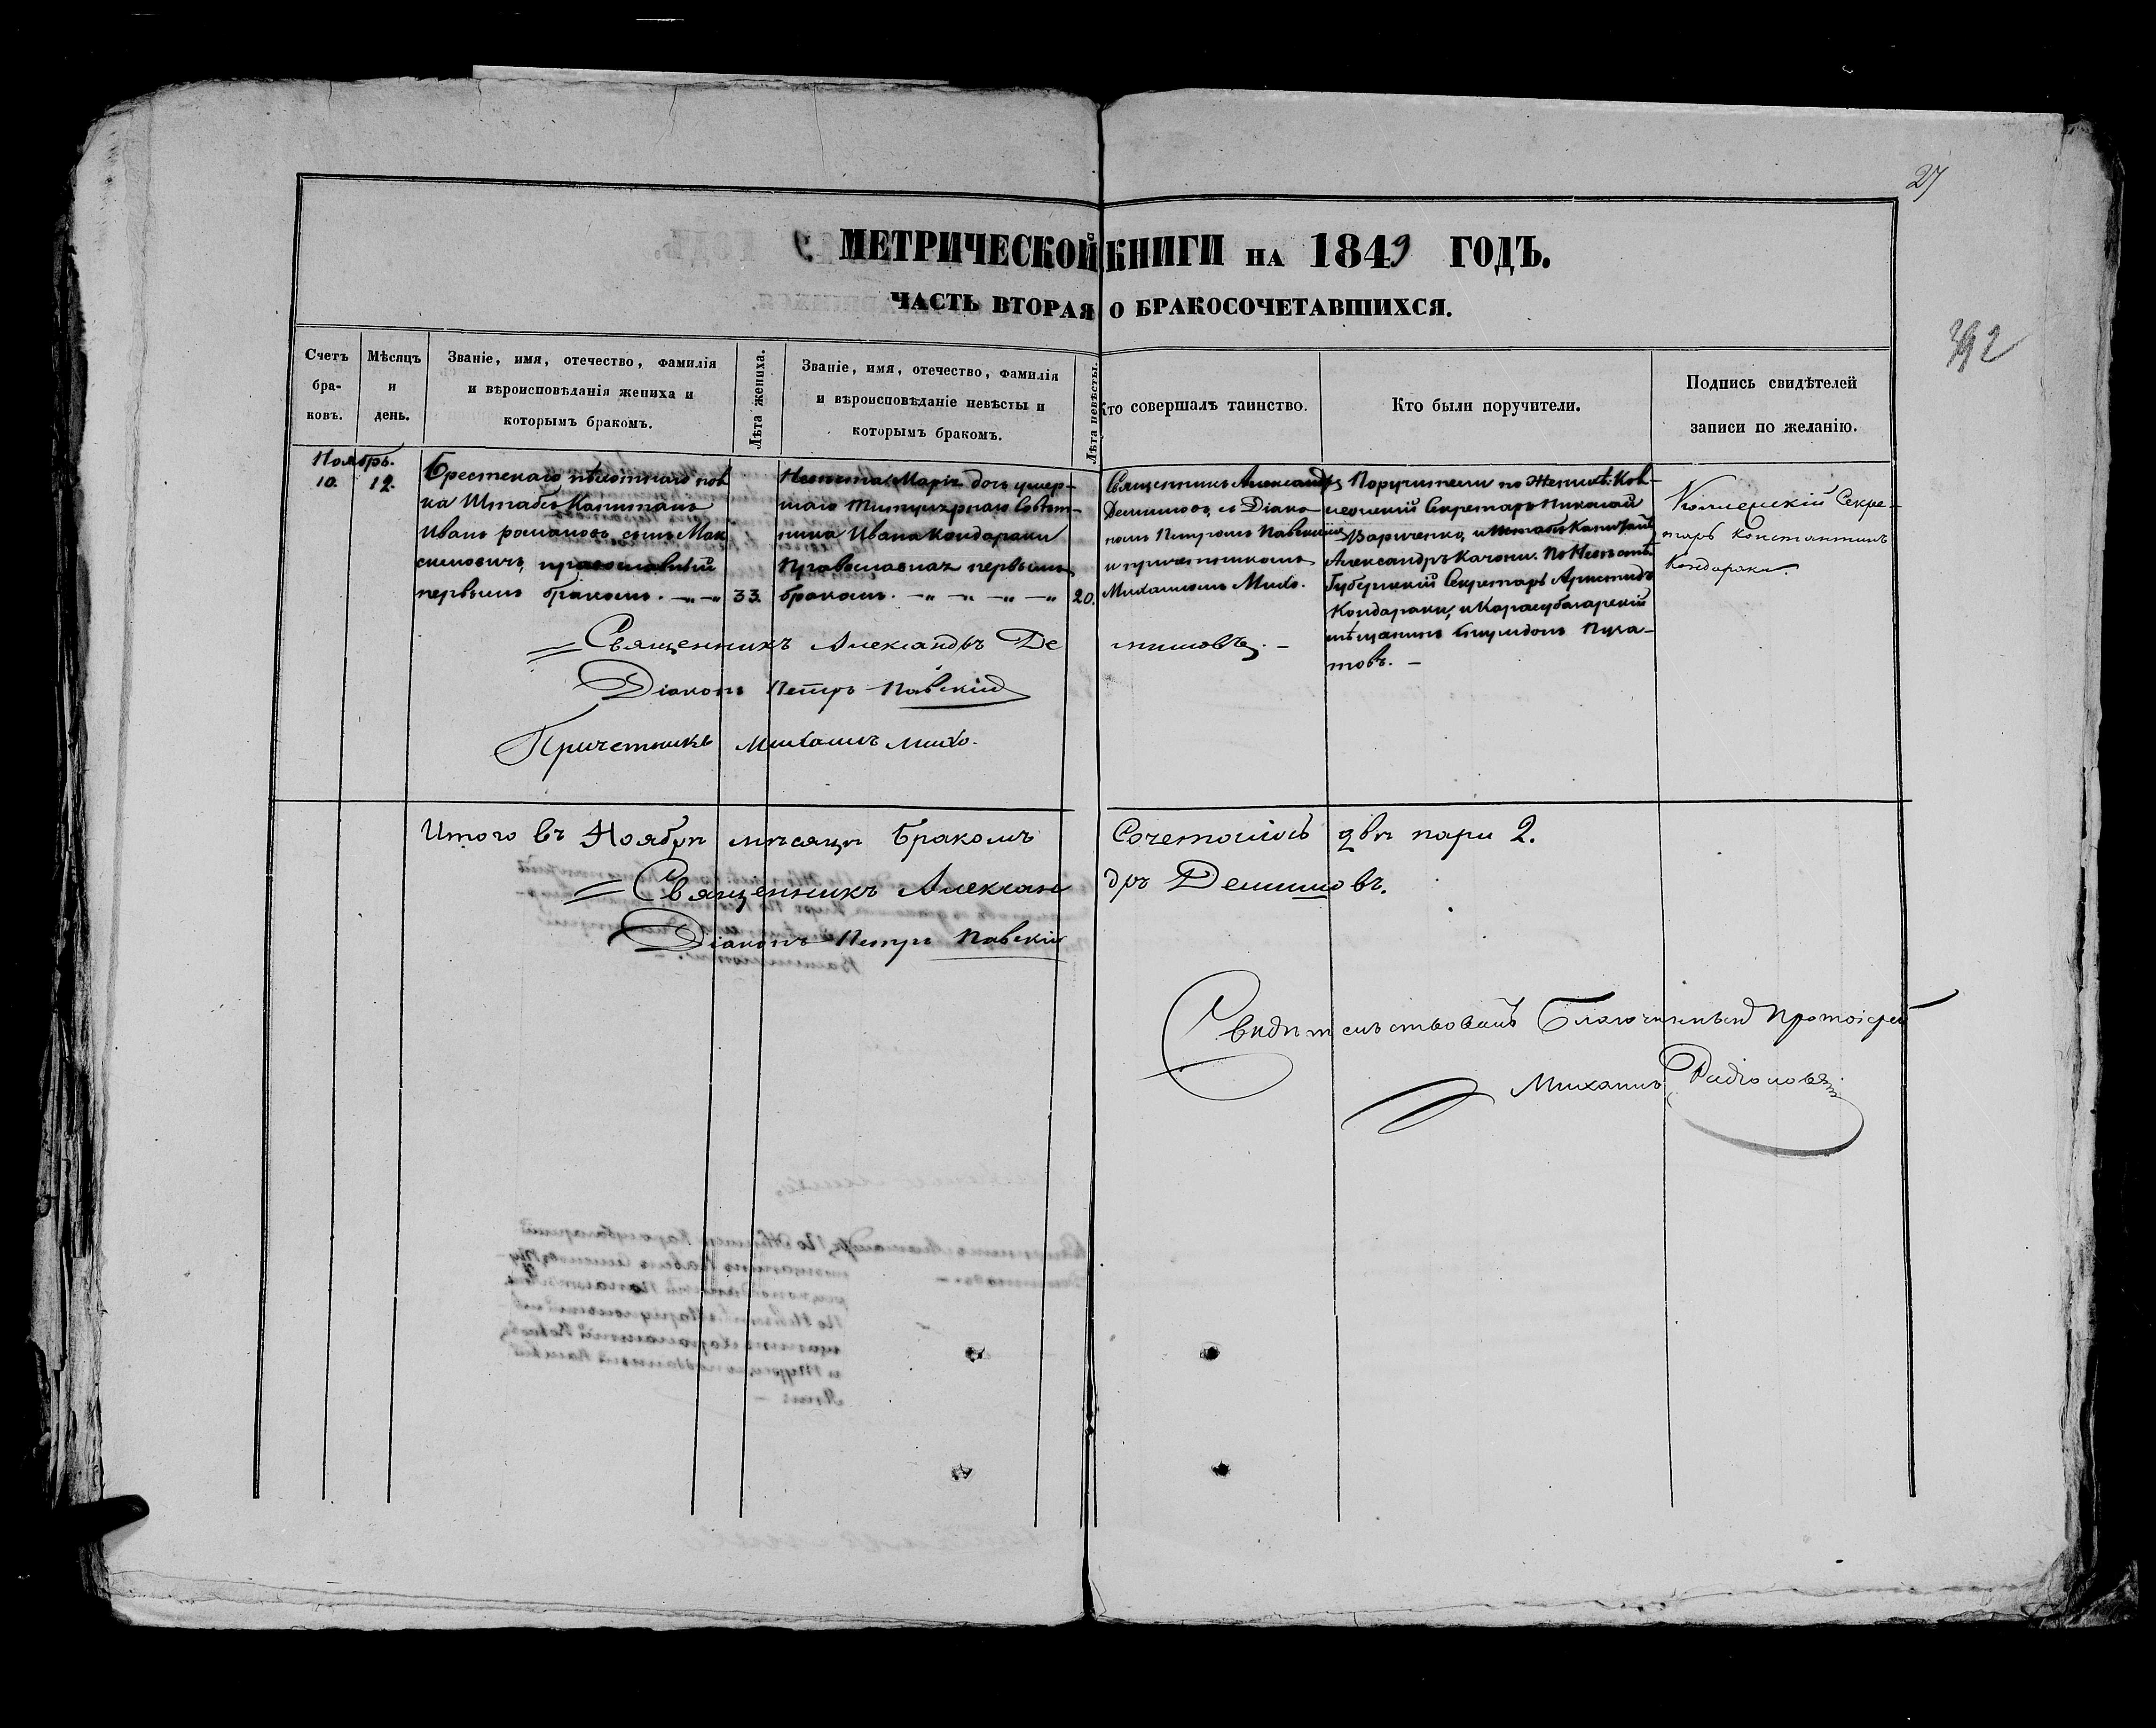 27
МЕТРИЧЕСКОЙ КНИГИ НА 1849 ГОДЪ.
ЧАСТЬ ВТОРАЯ О БРАКОСОЧЕТАВШИХСЯ.
392
Счетъ бра-ковъ.
Мѣсяцъ и день.
Званіе, имя, отечество, фамилія
и вѣроисповѣданія жениха и
которымъ бракомъ.
Лѣта жениха.
Званіе, имя, отечество, фамилія
и вѣроисповѣданіе невѣсты и
которымъ бракомъ.
Лѣта невѣсты.
Кто совершалъ таинство.
Кто были поручители.
Подпись свидѣтелей
записи по желанію.
Ноябрь.
10. 12.
Брестскаго пѣхотнаго пол
ка Штабсъ Капитанъ
Иванъ романовъ сынъ Мак
симовичъ, православный
первымъ бракомъ.
33.
Невѣста Марія дочь умер-
шаго Титулярнаго Совѣт-
ника Ивана Кондараки
Православная первымъ
бракомъ.
20.
Священникъ Александръ
Демишовъ, съ Діако-
номъ Петромъ Павскимъ
и причетникомъ
Михаиломъ Михо.
Поручители по Женихѣ: Кол-
лежскій Секретарь Николай
Вариченко, и Штабсъ Капитанъ
Александръ Качони. По Невѣстѣ
Губернскій Секретарь Аристидъ
Кондараки, и Карасубазарскій
мѣщанинъ Спиридонъ Пула-
товъ. —
Коллежскій Секре-
тарь Константинъ
Кондараки.
Священникъ Александръ Де мишовъ. —
Діаконъ Петръ Павскій
Причетникъ Михаилъ Михо.
Итого въ Ноябрѣ мѣсяцѣ бракомъ Сочеталось двѣ пари 2.
Священникъ Александръ Демишовъ.
Діаконъ Петръ Павскій
Свидѣтельствовалъ Благочинный Протоіерей
Михаилъ Родіоновъ